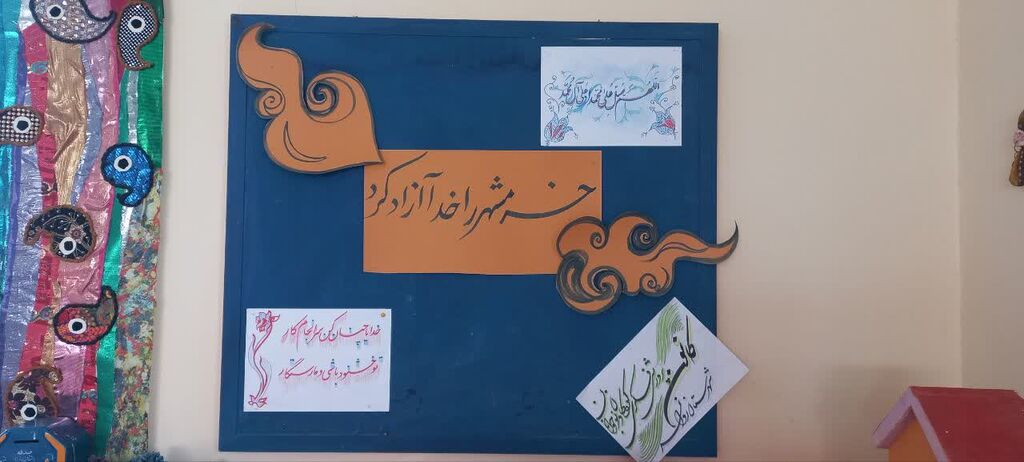 اللهم صل علی محمد و آل محمد
خرمشهر را خدا آزاد کرد
خدایا چنان کن سرانجام کار
تو خشنود باشی و ما رستگار
کانون پرورش فکری کودکان و نوجوانان
شهرستان
صدقه